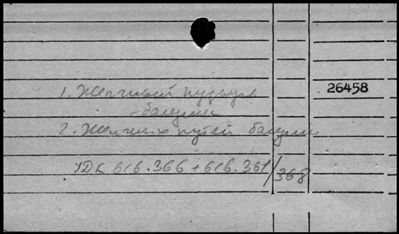 1. Желчный пузырь
26458
болезни
2. Желчных путей болезни
УДК 616.366+616.361/368